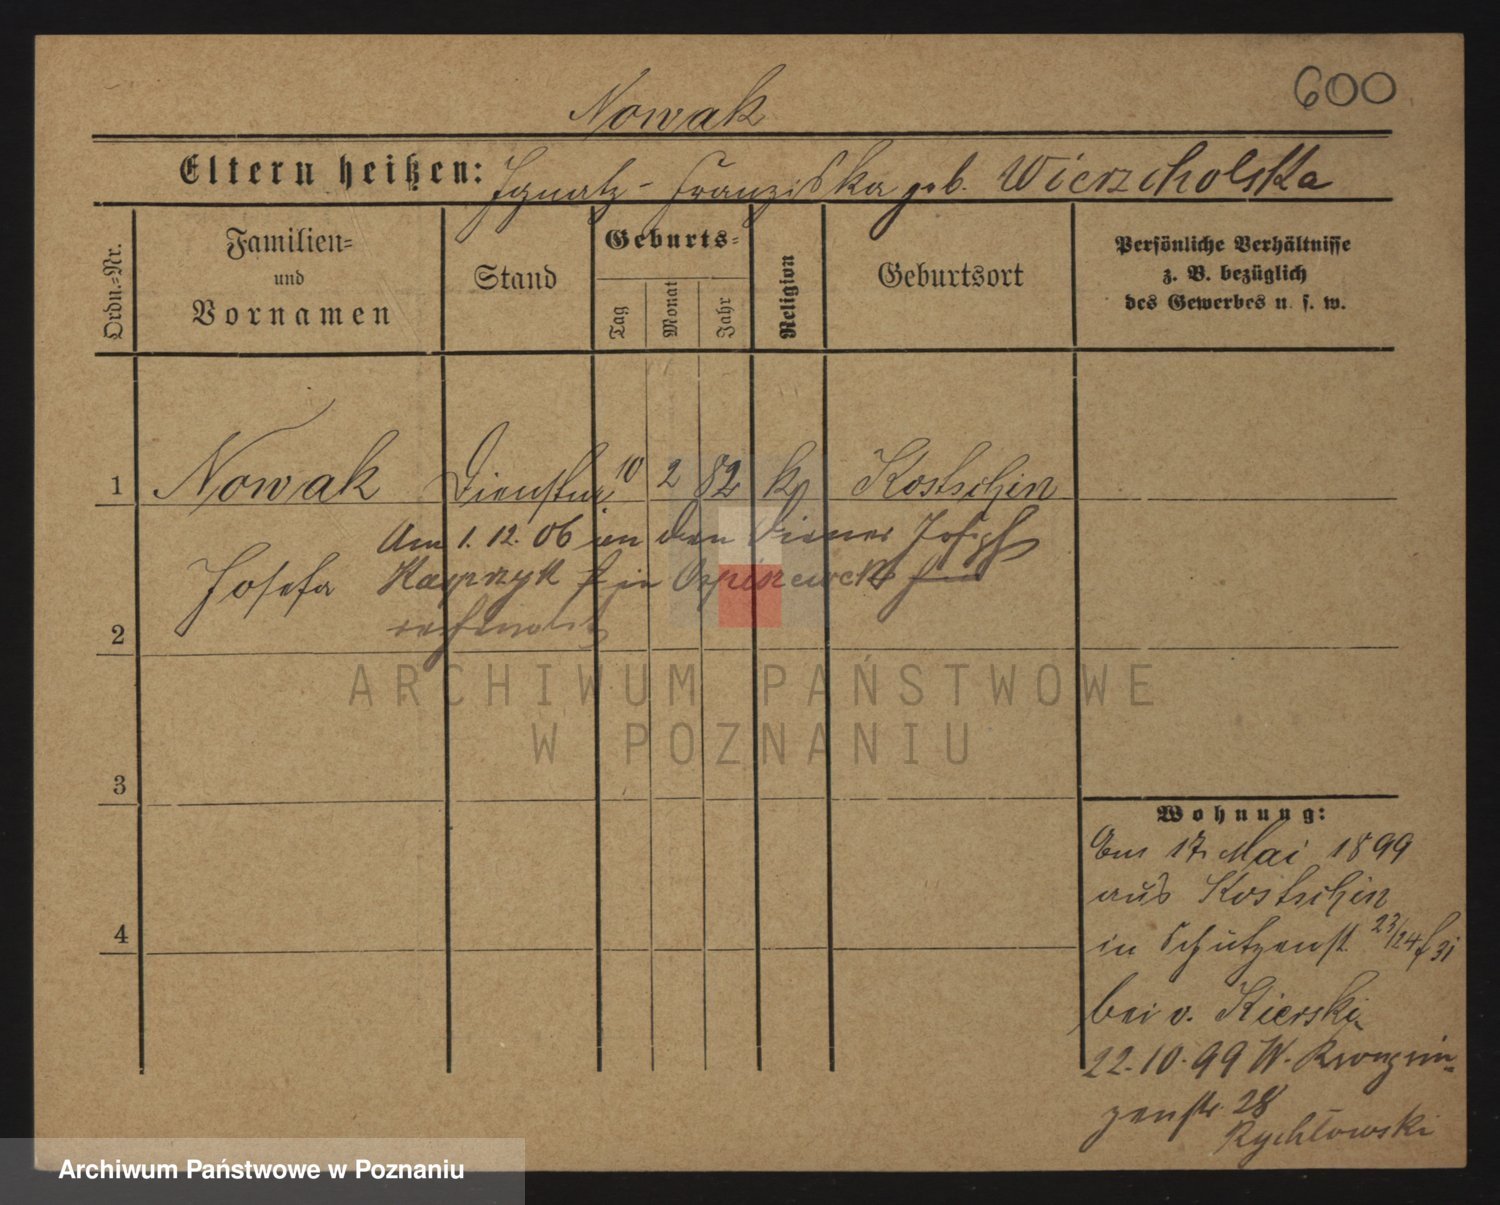 600
Nowak
Eltern heißen: Ignatz - Franziska geb. Wierzcholska
Ordn.-Nr.
Familien-
und
Vornamen
Stand
Geburts-
Tag
Monat
Jahr
Religion
Geburtsort
Persönliche Verhältnisse
z. B. bezüglich
des Gewerbes u. s. w.
1 Nowak 10 2 82 k Kostschin
Am 1.12.06 an den Diener Josef
Josefa Kasprzyk in
2
3
4
ARCHIWUM PAŃSTWOWE
W POZNANIU
Wohnung:
Am 17. Mai 1899
aus Kostschin
in Schützenst. 23/24 31
bei v. Kierski
22.10.99 W. Kronprin=
zenstr. 28
Rychlowski
Archiwum Państwowe w Poznaniu